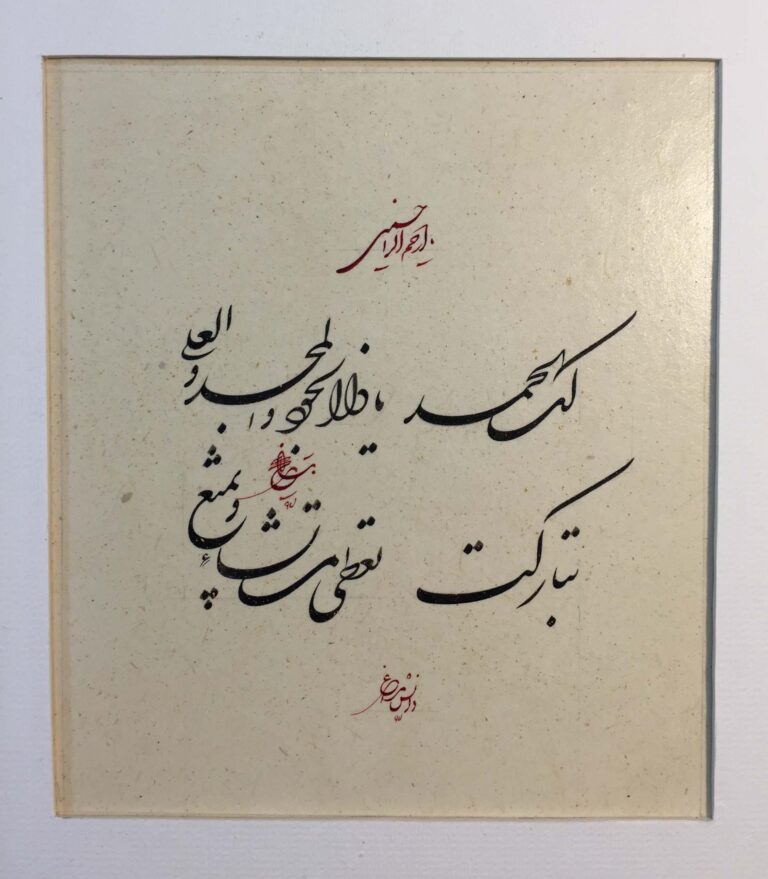 یا ارحم الراحمین
لک الحمد یا ذا الجود و المجد و العلی
تبارکت تعطی من تشاء و تمنع